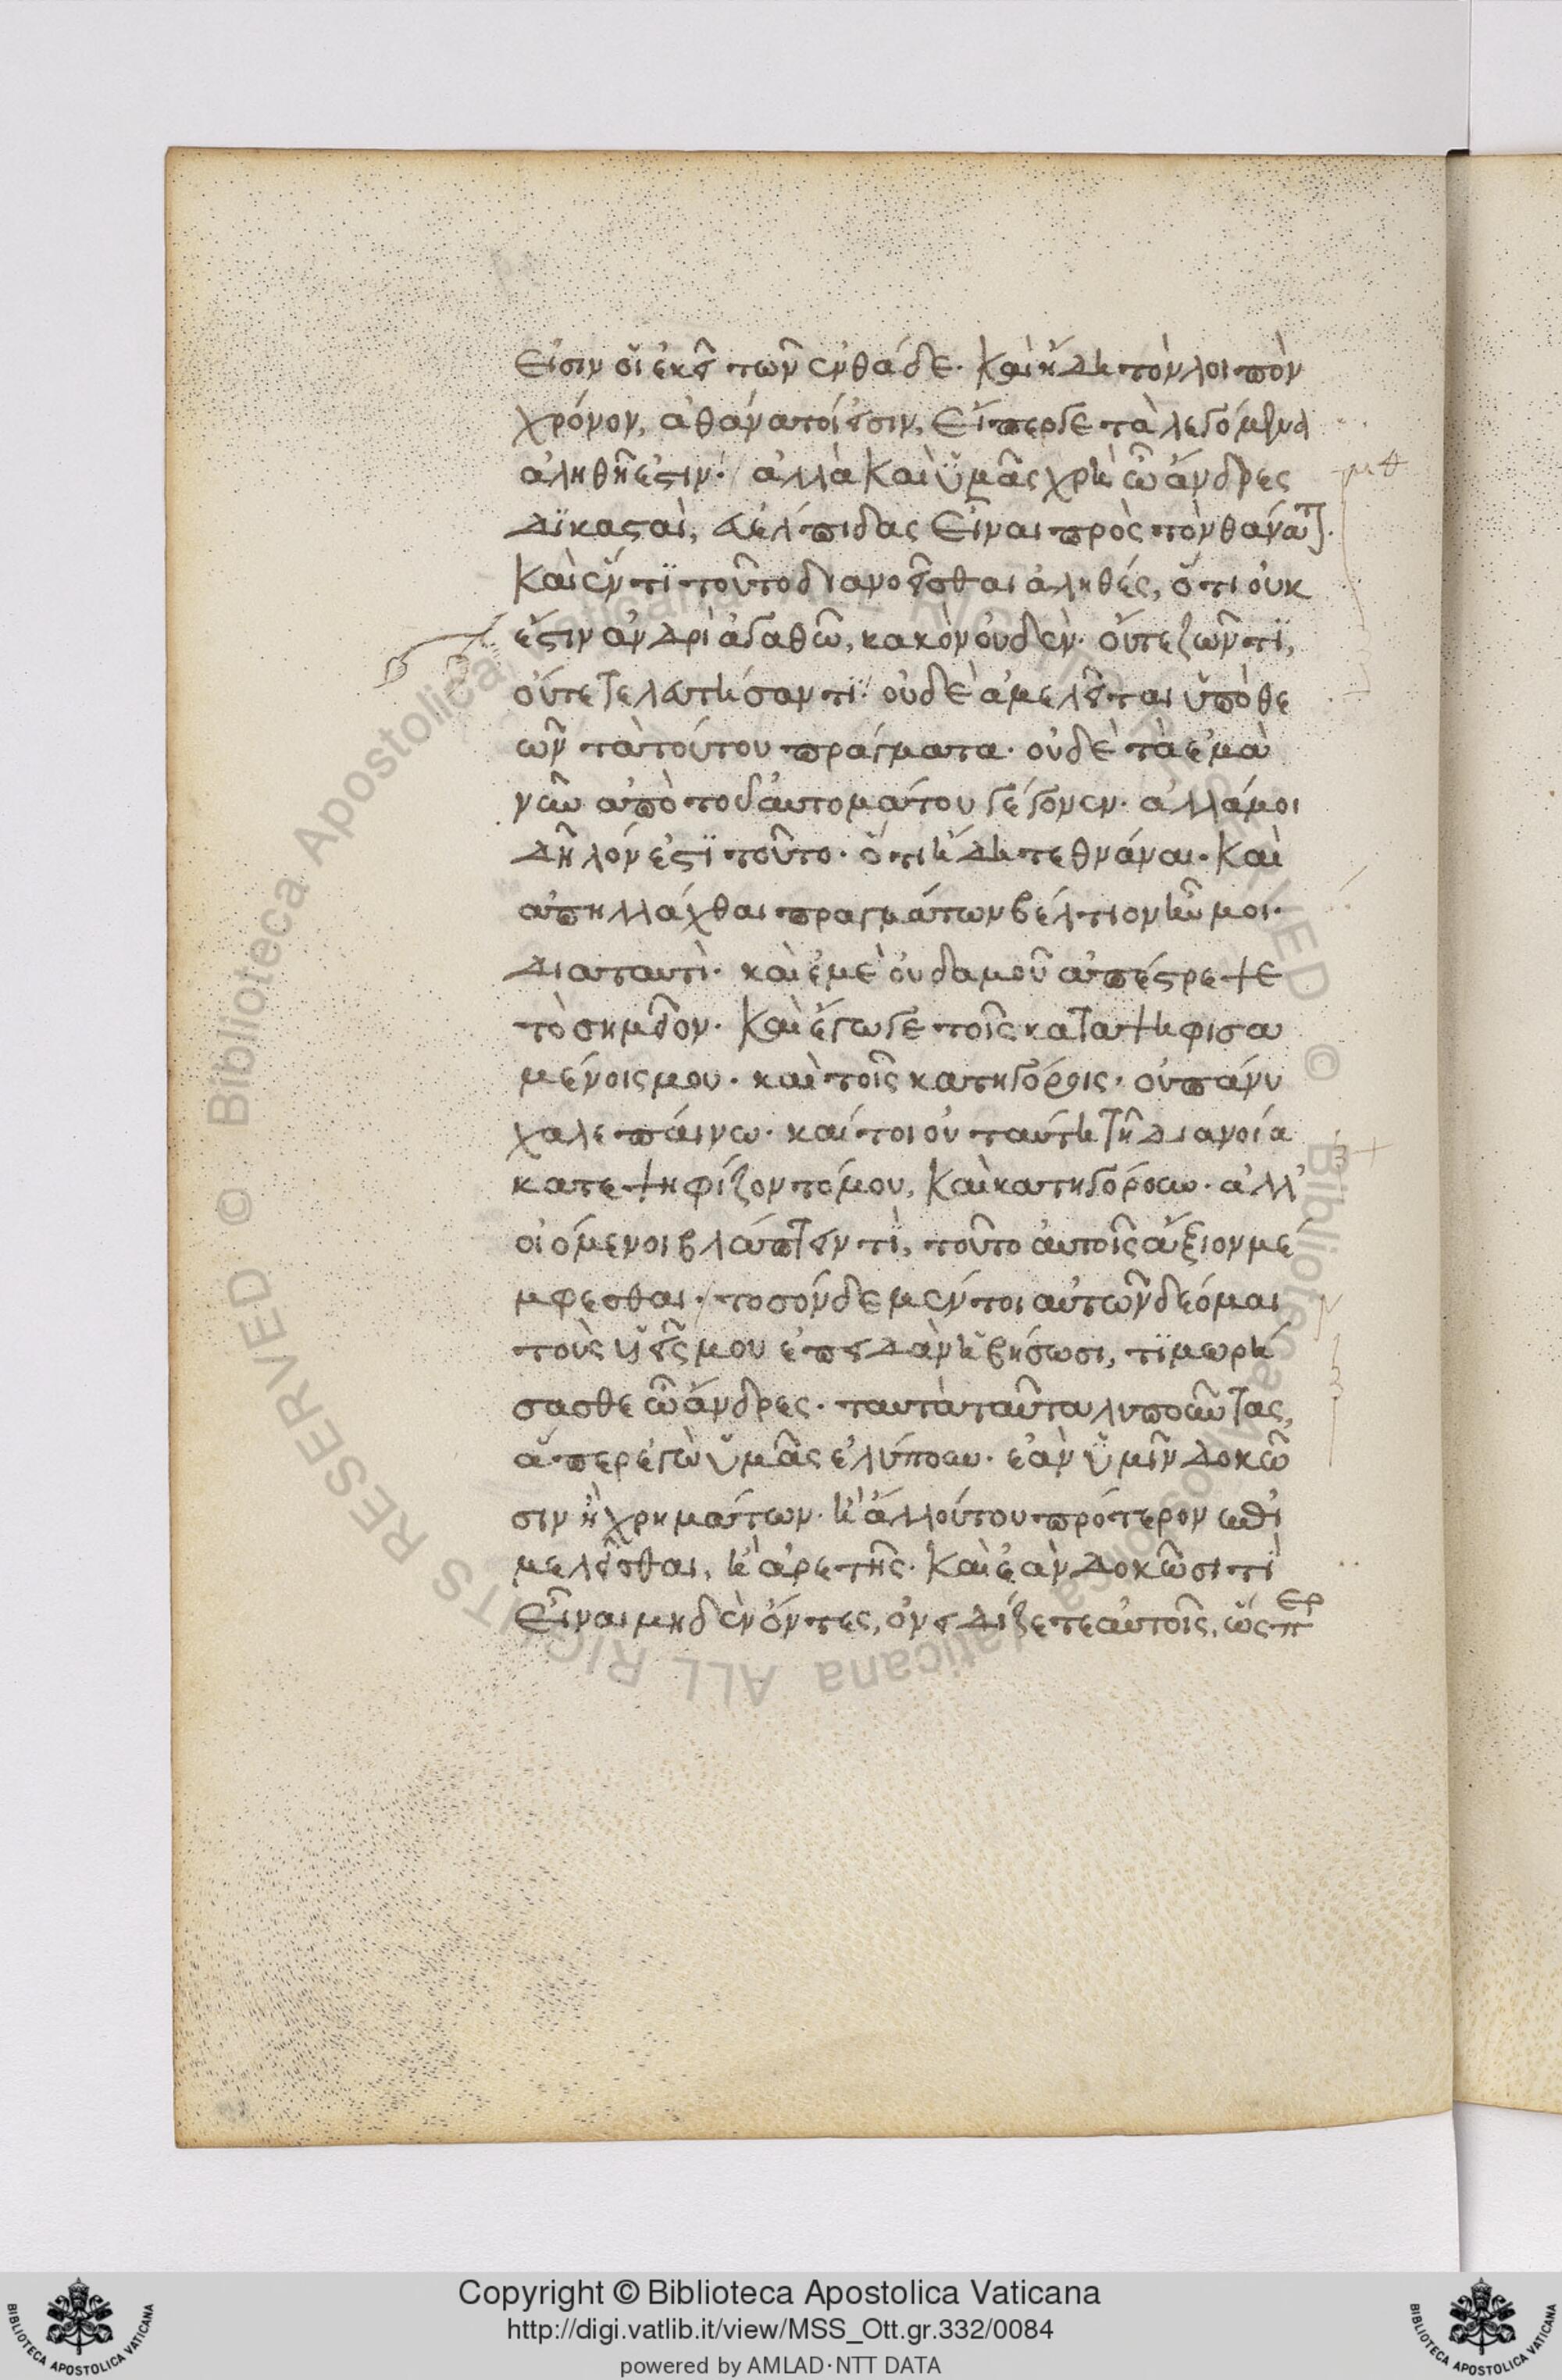 εἰσιν οἱ ἐκεῖ τῶν ἐνθάδε· καὶ ἤδη τὸν λοιπὸν
χρόνον, ἀθάνατοί εἰσιν, εἴπερ γε τὰ λεγόμενα
ἀληθῆ ἐστιν· ἀλλὰ καὶ ὑμᾶς χρὴ ὦ ἄνδρες
δικασταὶ, εὐέλπιδας εἶναι πρὸς τὸν θάνατον·
καὶ ἕν τι τοῦτο διανοεῖσθαι ἀληθές, ὅτι οὐκ
ἔστιν ἀνδρὶ ἀγαθῶ, κακὸν οὐδὲν· οὔτε ζῶντι,
οὔτε τελευτήσαντι· οὐδὲ ἀμελεῖται ὑπὸ θε
ῶν τὰ τούτου πράγματα· οὐδὲ τὰ ἐμὰ
νῦν ἀπὸ τοῦ αὐτομάτου γέγονεν· ἀλλά μοι
δῆλόν ἐστι τοῦτο· ὅτι ἤδη τεθνάναι· καὶ
ἀπηλλάχθαι πραγμάτων βέλτιον ἦν μοι·
διαταυτὶ· καὶ ἐμὲ οὐδαμοῦ ἀπέστρεψε
τὸ σημεῖον· καὶ ἔγωγε τοῖς καταψηφισα
μένοις μου· καὶ τοῖς κατηγόροις· οὐ πάνυ
χαλεπαίνω· καίτοι οὐ ταύτη τῆ διανοία
κατεψηφίζοντό μου, καὶ κατηγόρουν· ἀλλ'
οἰόμενοι βλάπτειν τὶ, τοῦτο αὐτοῖς ἄξιον μέ
μφεσθαι· τοσόνδε μέντοι αὐτῶν δέομαι
τοὺς υἱεῖς μου ἐπειδὰν ἡβήσωσι, τιμωρή
σασθε ὦ ἄνδρες· ταυτὰ ταῦτα λυποῦντας,
ἅπερ ἐγὼ ὑμᾶς ἐλύπουν· ἐὰν ὑμῖν δοκῶ
σιν ἢ χρημάτων· ἢ ἄλλου του πρότερον ἐπι
μελεῖσθαι, ἢ ἀρετῆς· καὶ ἐὰν δοκῶσι τὶ
εἶναι μηδὲν ὄντες, ὀνειδίζετε αὐτοῖς, ὥσπερ